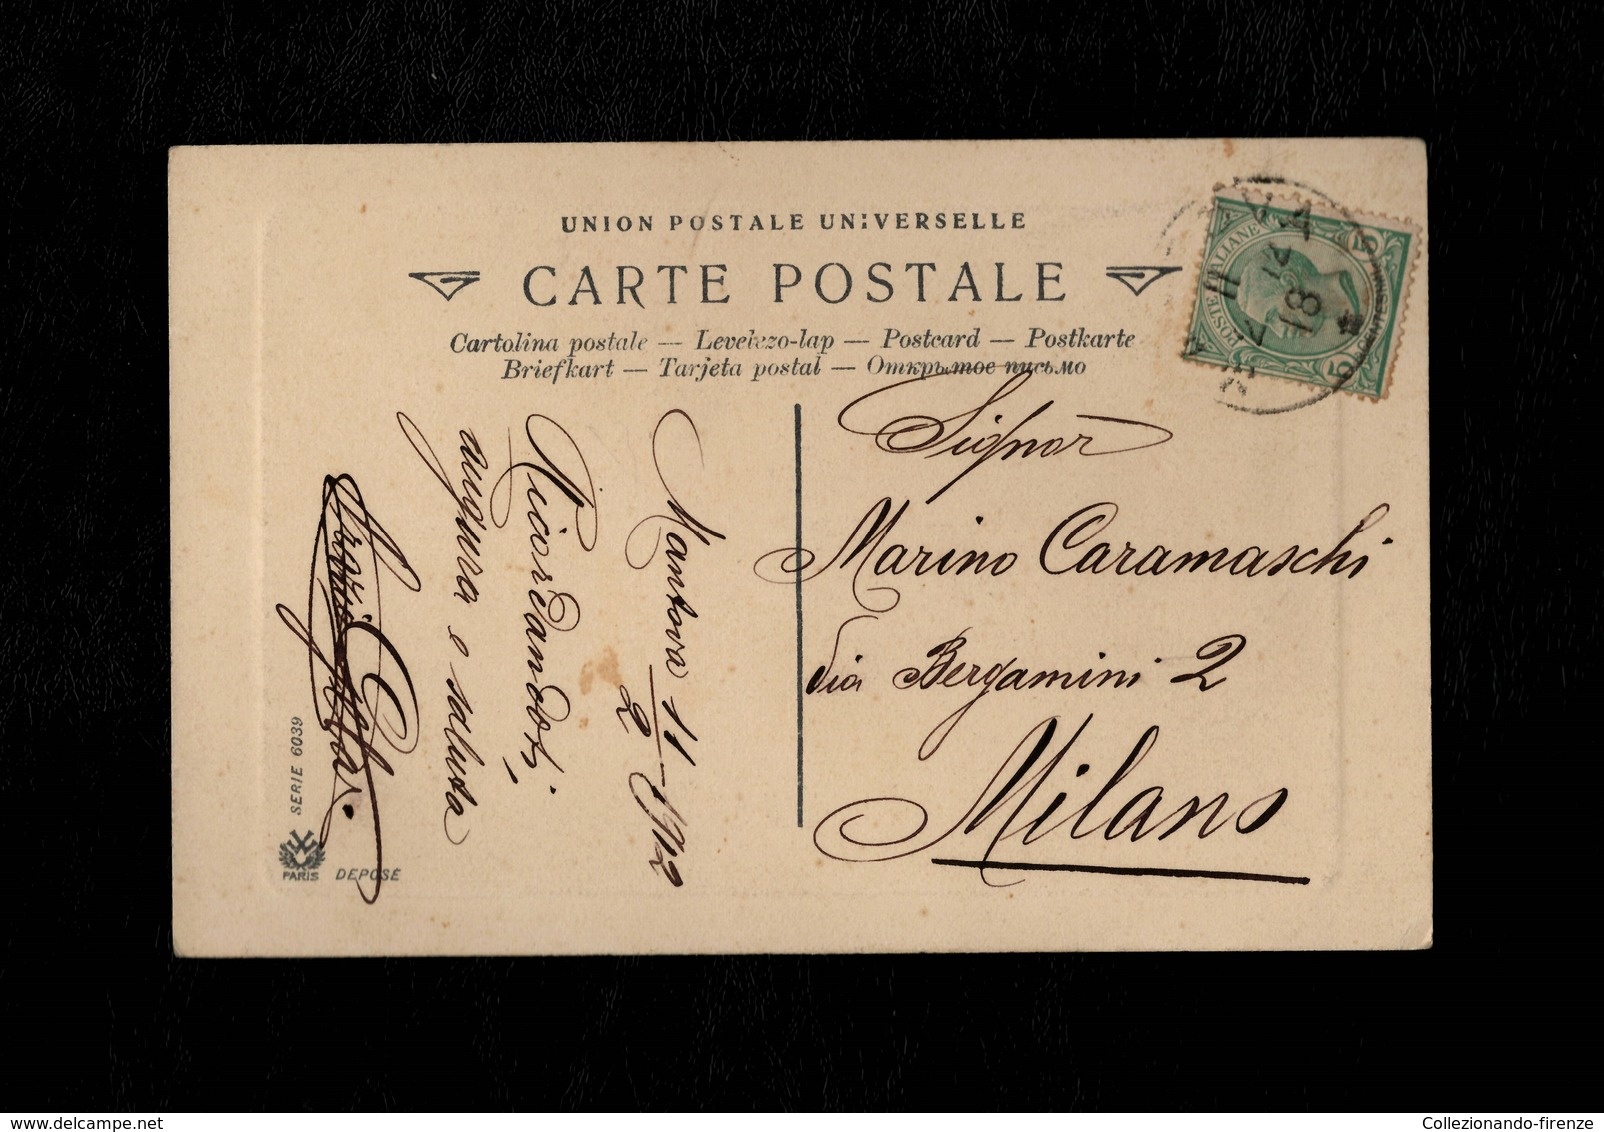 UNION POSTALE UNIVERSELLE
CARTE POSTALE
Cartolina postale — Levelezo-lap — Postcard — Postkarte
Briefkart — Tarjeta postal — Открытое письмо
POSTE ITALIANE
5 5
Signor
Marino Caramaschi
Via Bergamini 2
Milano
Mantova 11/2 1912
Ricordandoti,
augura e saluta
SERIE 6039
PARIS DEPOSÉ
Collezionando-firenze